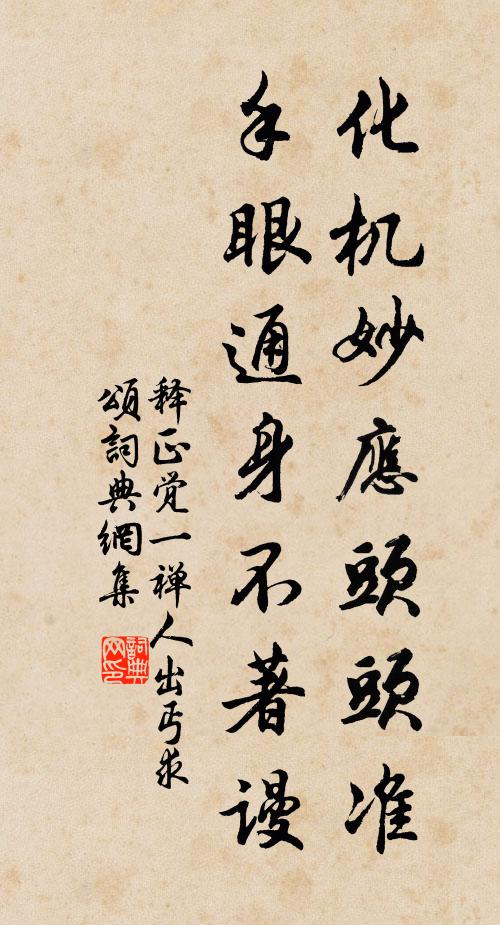 化机妙應頭頭准
手眼通身不著谩
释正觉一禅人出丐求
頌詞典網集
詞典
网印